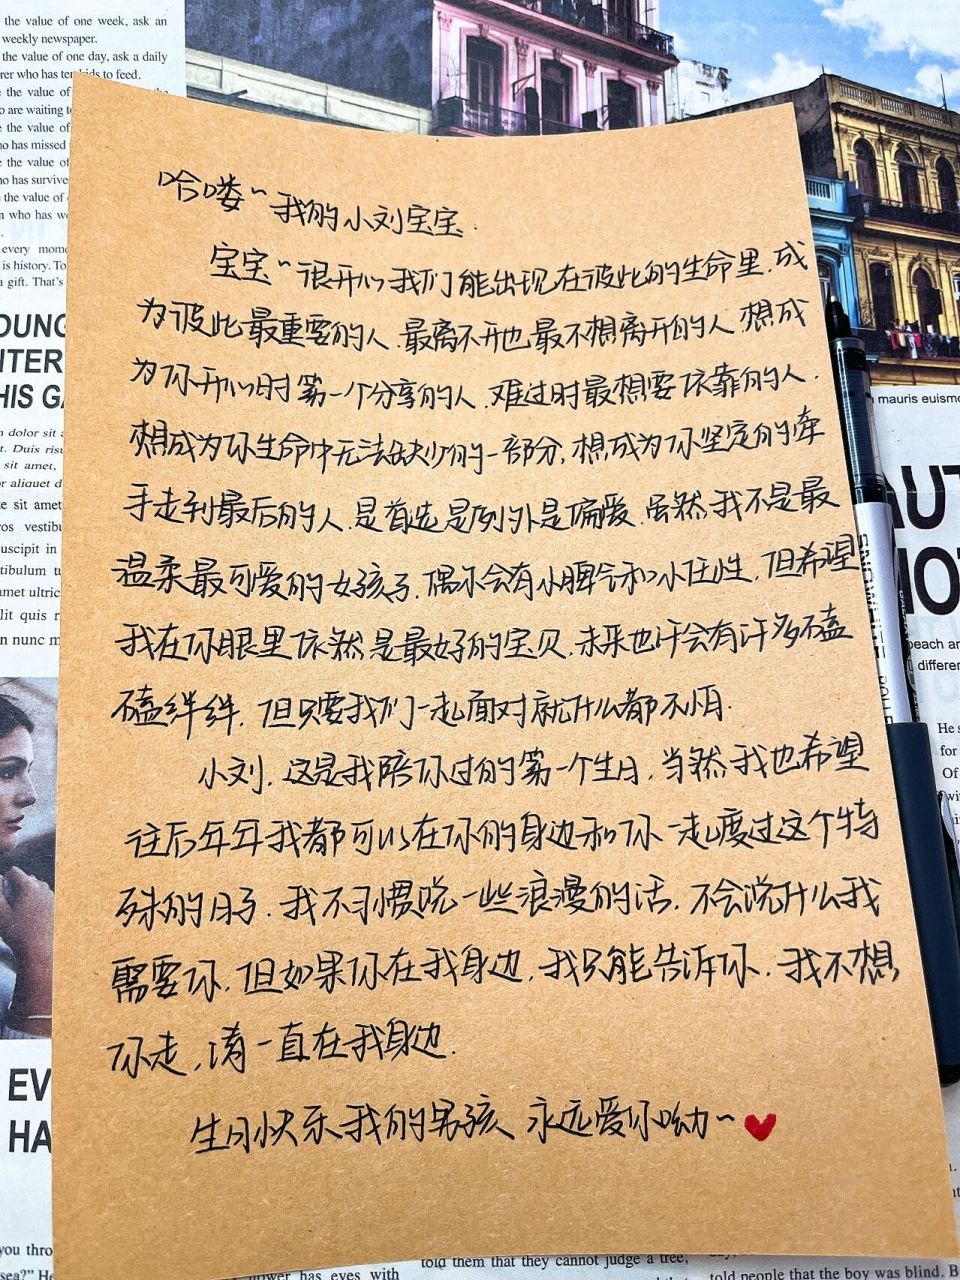 the value of one week, ask an
weekly newspaper.
the value of one day, ask a daily
rer who has ten kids to feed.
the value of
o are waiting
the value of
o has missed
the value of
has survive
the value of
who has
every mome
is history. To
a gift. That's
OUNG
NTER
HIS GA
哈喽~我的小刘宝宝.
宝宝~很开心我们能出现在彼此的生命里.成
为彼此最重要的人.最离不开也最不想离开的人.想成
为你开心时第一个分享的人.难过时最想要依靠的人.
想成为你生命中无法缺少的一部分,想成为你坚定的牵
手走到最后的人.是首选是例外是偏爱.虽然我不是最
温柔最可爱的女孩子.偶尔会有小脾气和小任性.但希望
我在你眼里依然是最好的宝贝.未来也许会有许多磕
磕绊绊.但只要我们一起面对就什么都不怕.
小刘.这是我陪你过的第一个生日.当然我也希望
往后年年我都可以在你的身边和你一起度过这个特
殊的日子.我不习惯说一些浪漫的话.不会说什么我
需要你.但如果你在我身边.我只能告诉你.我不想
你走,请一直在我身边.
生日快乐我的男孩 永远爱你呦~
dolor sit
t. Duis risu
sit amet,
or aliquet d
te sit amet
ros vestibu
suscipit in
tibulum
amet ultric
lit quis
n nunc m
mauris euismo
AUT
MO
SNOWHITE
beach an
differen
He s
for
Of
EV
HA
you thro
sea?" He
flower has eyes with
told them that they cannot judge a tree,
told people that the boy was blind. B